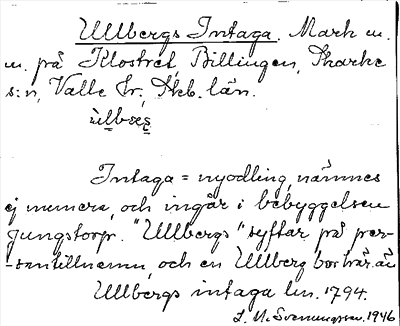 Ullbergs Intaga. Mark m.
m. på Klostret, Billingen, Skarke
s:n, Valle hr, Skb. län.
Intaga = nyodling, nämnes
ej numera, och ingår i bebyggelsen
Ljungstorp. "Ullbergs" syftar på per-
-sontillnamn, och en Ullberg bor här än
Ullbergs intaga lm. 1794.
L. M. Svenungsson. 1946